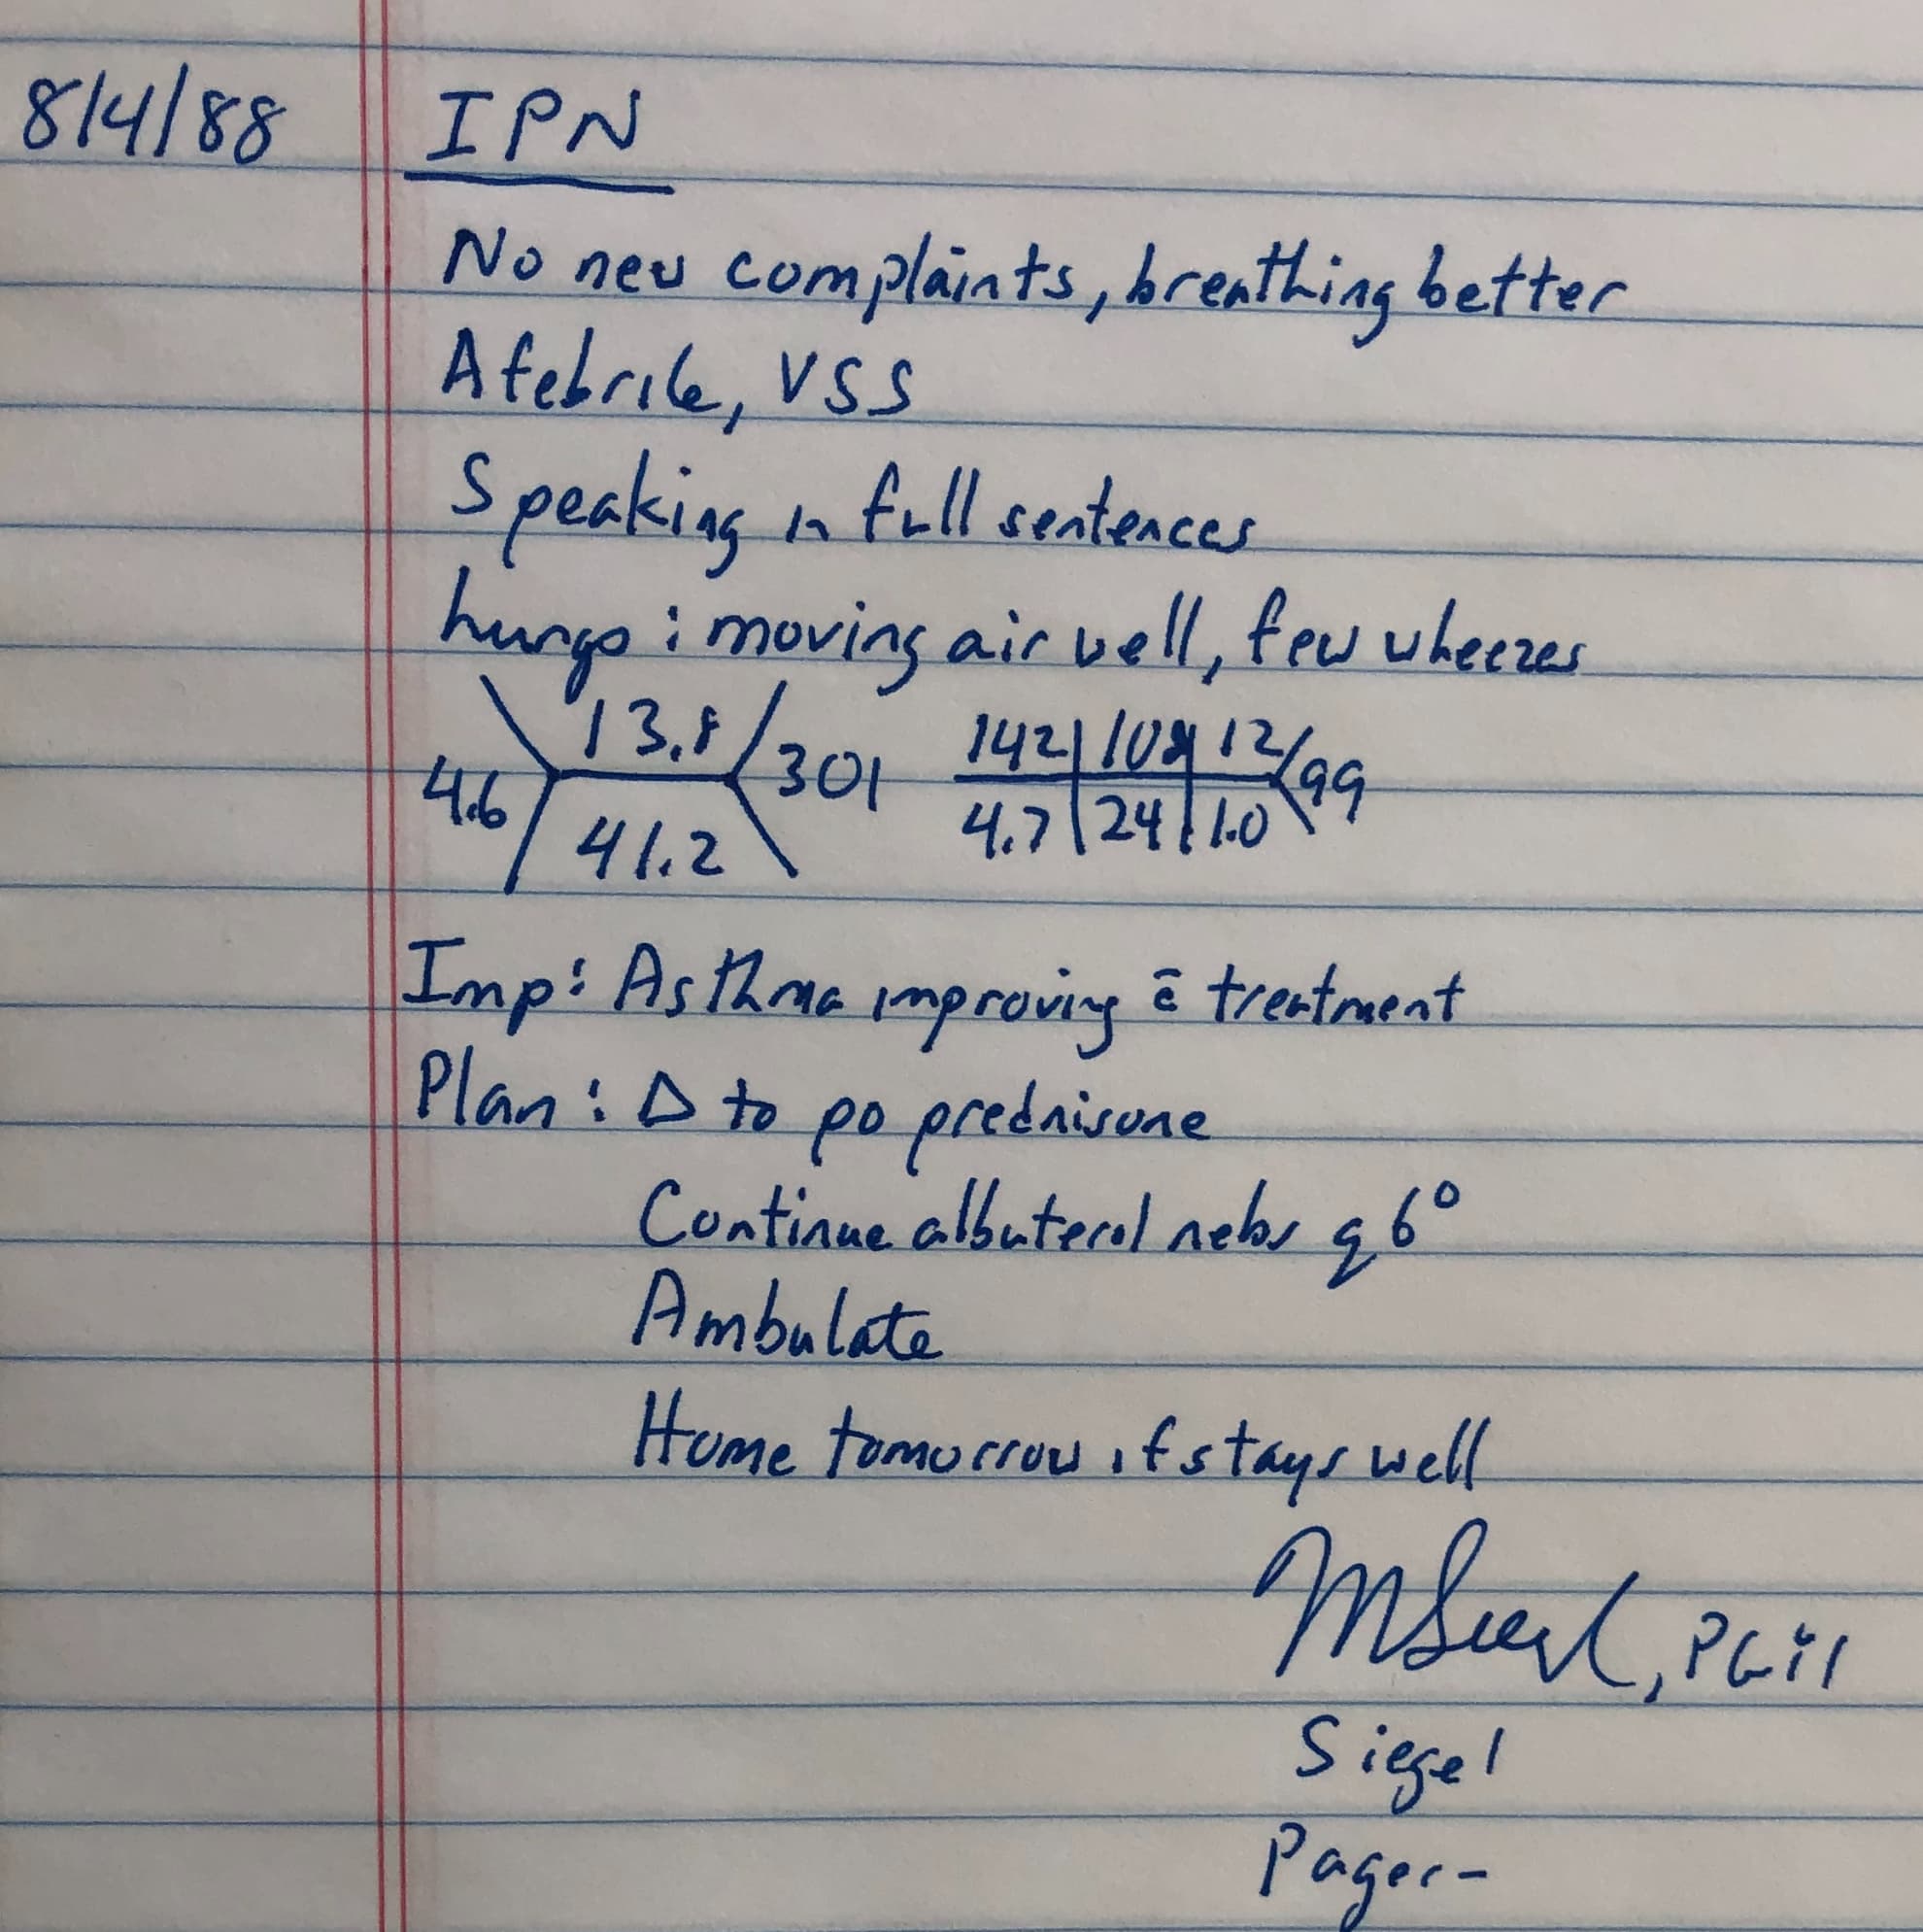 8/4/88 IPN
No new complaints, breathing better
Afebrile, VSS
Speaking in full sentences
Lungs: moving air well, few wheezes
13.8
4.6 301
41.2
142 102 12
99
4.7 24 1.0
Imp: Asthma improving c̄ treatment
Plan: Δ to po prednisone
Continue albuterol nebs q 6°
Ambulate
Home tomorrow if stays well
MSiegel, PGY1
Siegel
Pager-